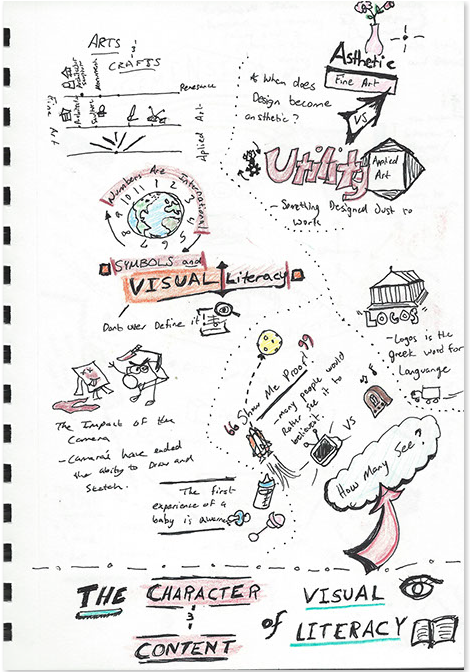 ARTS
&
CRAFTS
Architect
Sculptor
Monument
Renesence
Fine Art
Architect
Sculptor
Aplied Art
Asthetic
Fine Art
VS
When does
Design become
asthetic?
Utility
Applied
Art
- Something Designed Just to
work
Numbers Are International
1 2 3 4 5 6 7 8 9 10 11
SYMBOLS and
VISUAL Literacy
Don't ever Define it
"Show Me Proof"
- many people would
Rather see it to
believe it
VS
LOGOS
- Logos is the
greek word for
Languange
The Impact of the
Camera
- Camera's have ended
the ability to Draw and
Sketch.
The first
experience of a
baby is
How Many See?
THE CHARACTER
&
CONTENT
of VISUAL
LITERACY